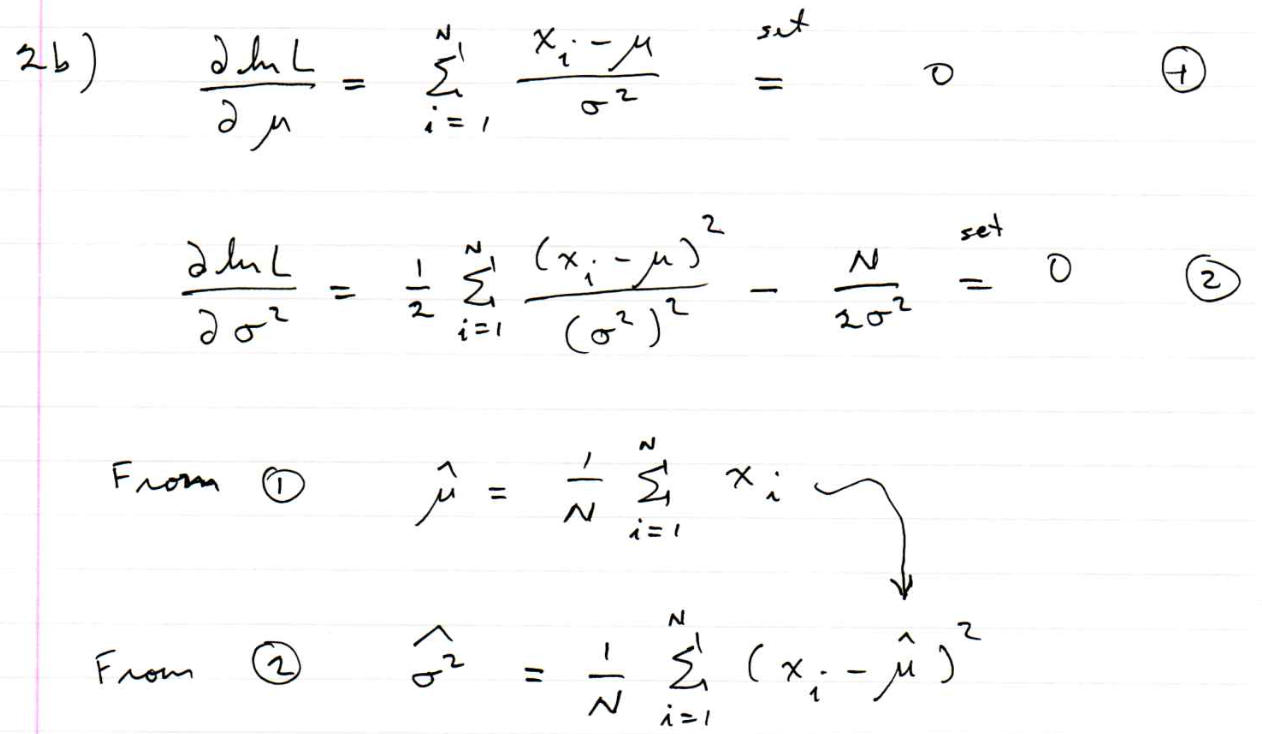 2b) ∂ ln L / ∂ μ = Σ_{i=1}^{N} (x_i − μ) / σ² set = 0 ①
∂ ln L / ∂ σ² = 1/2 Σ_{i=1}^{N} (x_i − μ)² / (σ²)² − N / 2σ² set = 0 ②
From ① μ̂ = 1/N Σ_{i=1}^{N} x_i
From ② σ²^ = 1/N Σ_{i=1}^{N} (x_i − μ̂)²